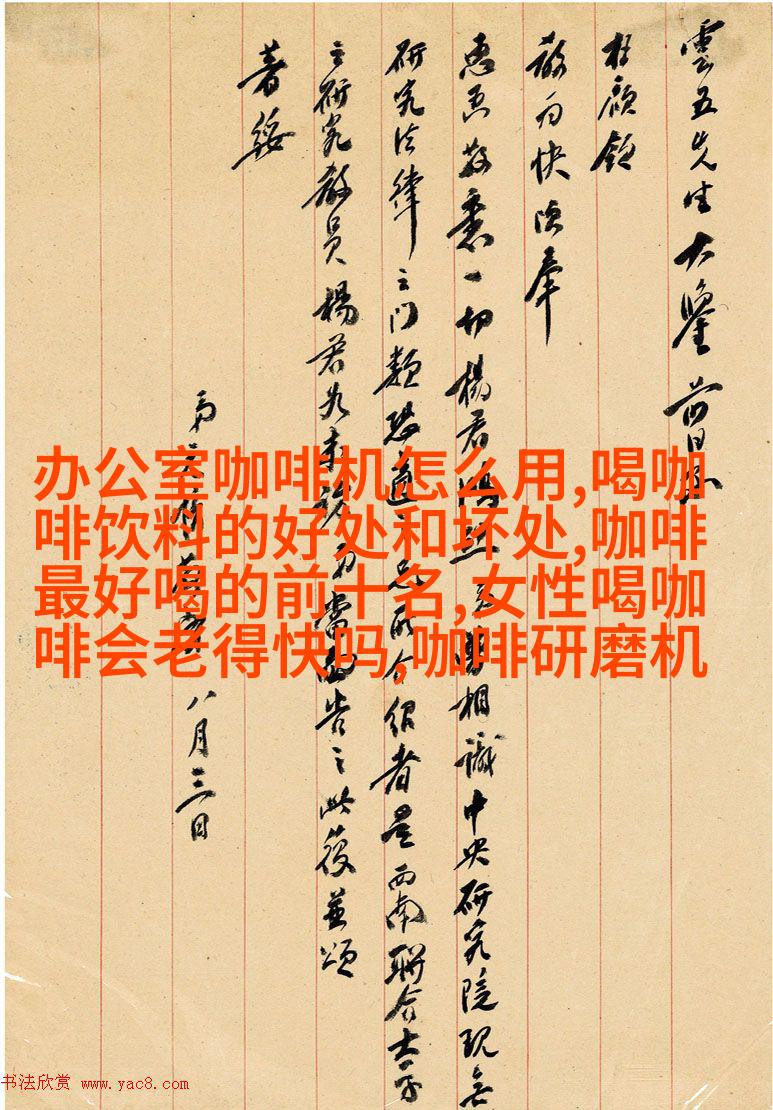 雲五先生大鑒前日承
枉顧領
教为快頃奉
惠示敬悉一切楊君相識中央研究院現無
研究法律之門類恐適之兄所介紹者是西南聯合大学
之研究教員楊君如未當告之此復並頌
著綏
弟八月三日
办公室咖啡机怎么用,喝咖
啡饮料的好处和坏处,咖啡
最好喝的前十名,女性喝咖
啡会老得快吗,咖啡研磨机
书法欣赏 www.yac8.com